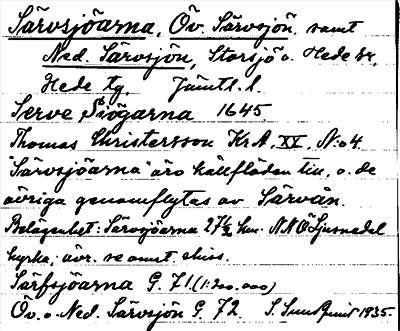 Särvsjöarna, Öv. Särvsjön, samt
Ned. Särvsjön, Storsjö o. Hede sr,
Hede tg. Jämtl. l.
Serve Siögarna 1645
Thomas Christersson Kr.A. XX. N:o 4.
"Särvsjöarna" äro källflöden till, o. de
övriga genomflytas av Särvån.
Belägenhet: Särvsjöarna 27½ km. NNÖ Ljusnedal
kyrka; övr. se annat
Särfsjöarna G. 71 (1:200.000)
Öv. o. Ned. Särvsjön G. 72. S. 1935.